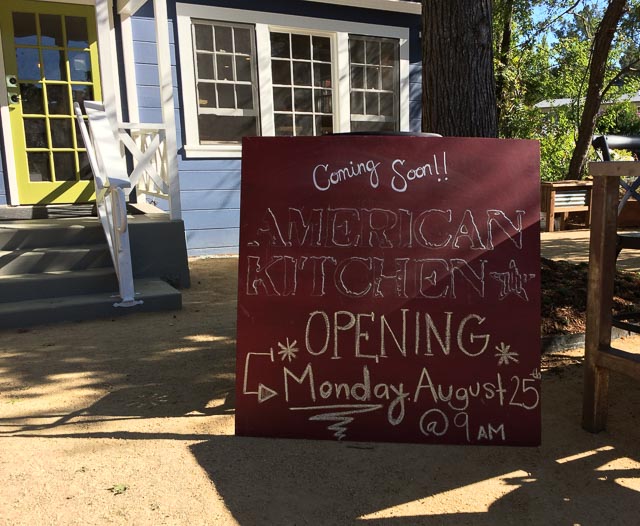 Coming Soon!!
AMERICAN
KITCHEN
OPENING
Monday. August 25th
@ 9 AM